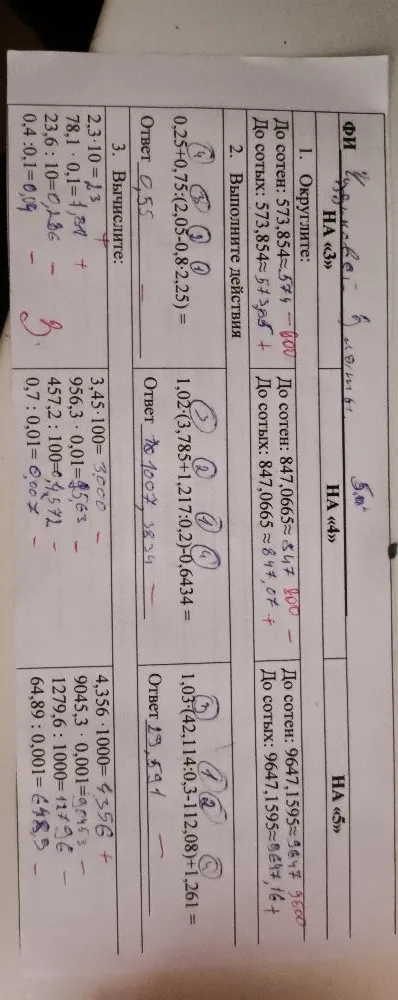 ФИ
НА «3» НА «4» НА «5»
1. Округлите:
До сотен: 573,854≈574 – 600 До сотен: 847,0665≈847 800 – До сотен: 9647,1595≈9647 9600
До сотых: 573,854≈573,85 + До сотых: 847,0665≈847,07 + До сотых: 9647,1595≈9647,16 +
2. Выполните действия
④ ③ ② ① ③ ② ① ④ ③ ① ② ④
0,25+0,75:(2,05-0,8·2,25) = 1,02·(3,785+1,217:0,2)-0,6434 = 1,03·(42,114:0,3-112,08)+1,261 =
Ответ 0,55 – Ответ – Ответ 29,591 –
3. Вычислите:
2,3·10 = 23 + 3,45·100= 3,000 – 4,356 ·1000= 4356 +
78,1 · 0,1= 7,81 + 956,3 · 0,01= 9563 – 9045,3 · 0,001= 90453 –
23,6 : 10= 0,236 – 457,2 : 100= 0,4572 – 1279,6 : 1000= 12796 –
0,4 :0,1= 0,04 – 0,7 : 0,01= 0,007 – 64,89 : 0,001= 6489 –